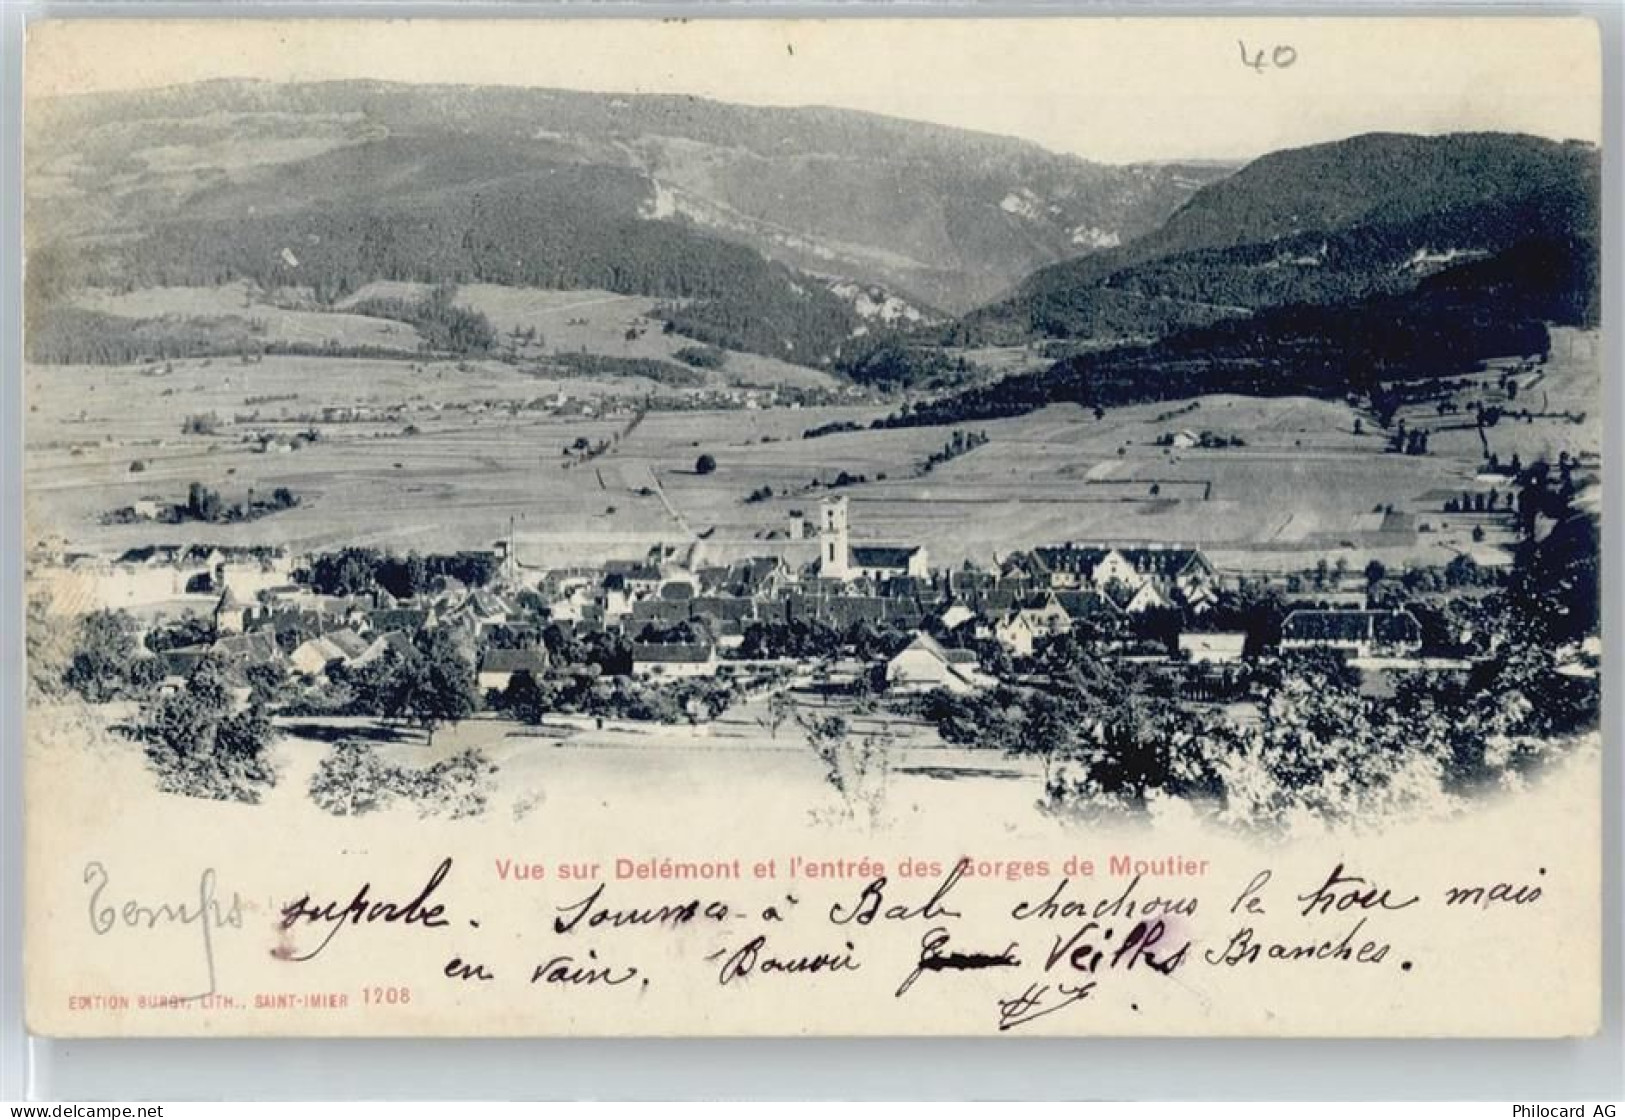 40
Vue sur Delémont et l'entrée des Gorges de Moutier
Temps superbe. Sommes à Bale cherchons le trou mais
en vain. Bonsoir Veilles Branches.
EDITION BURGY, LITH., SAINT-IMIER 1208
delcampe.net
Philocard AG